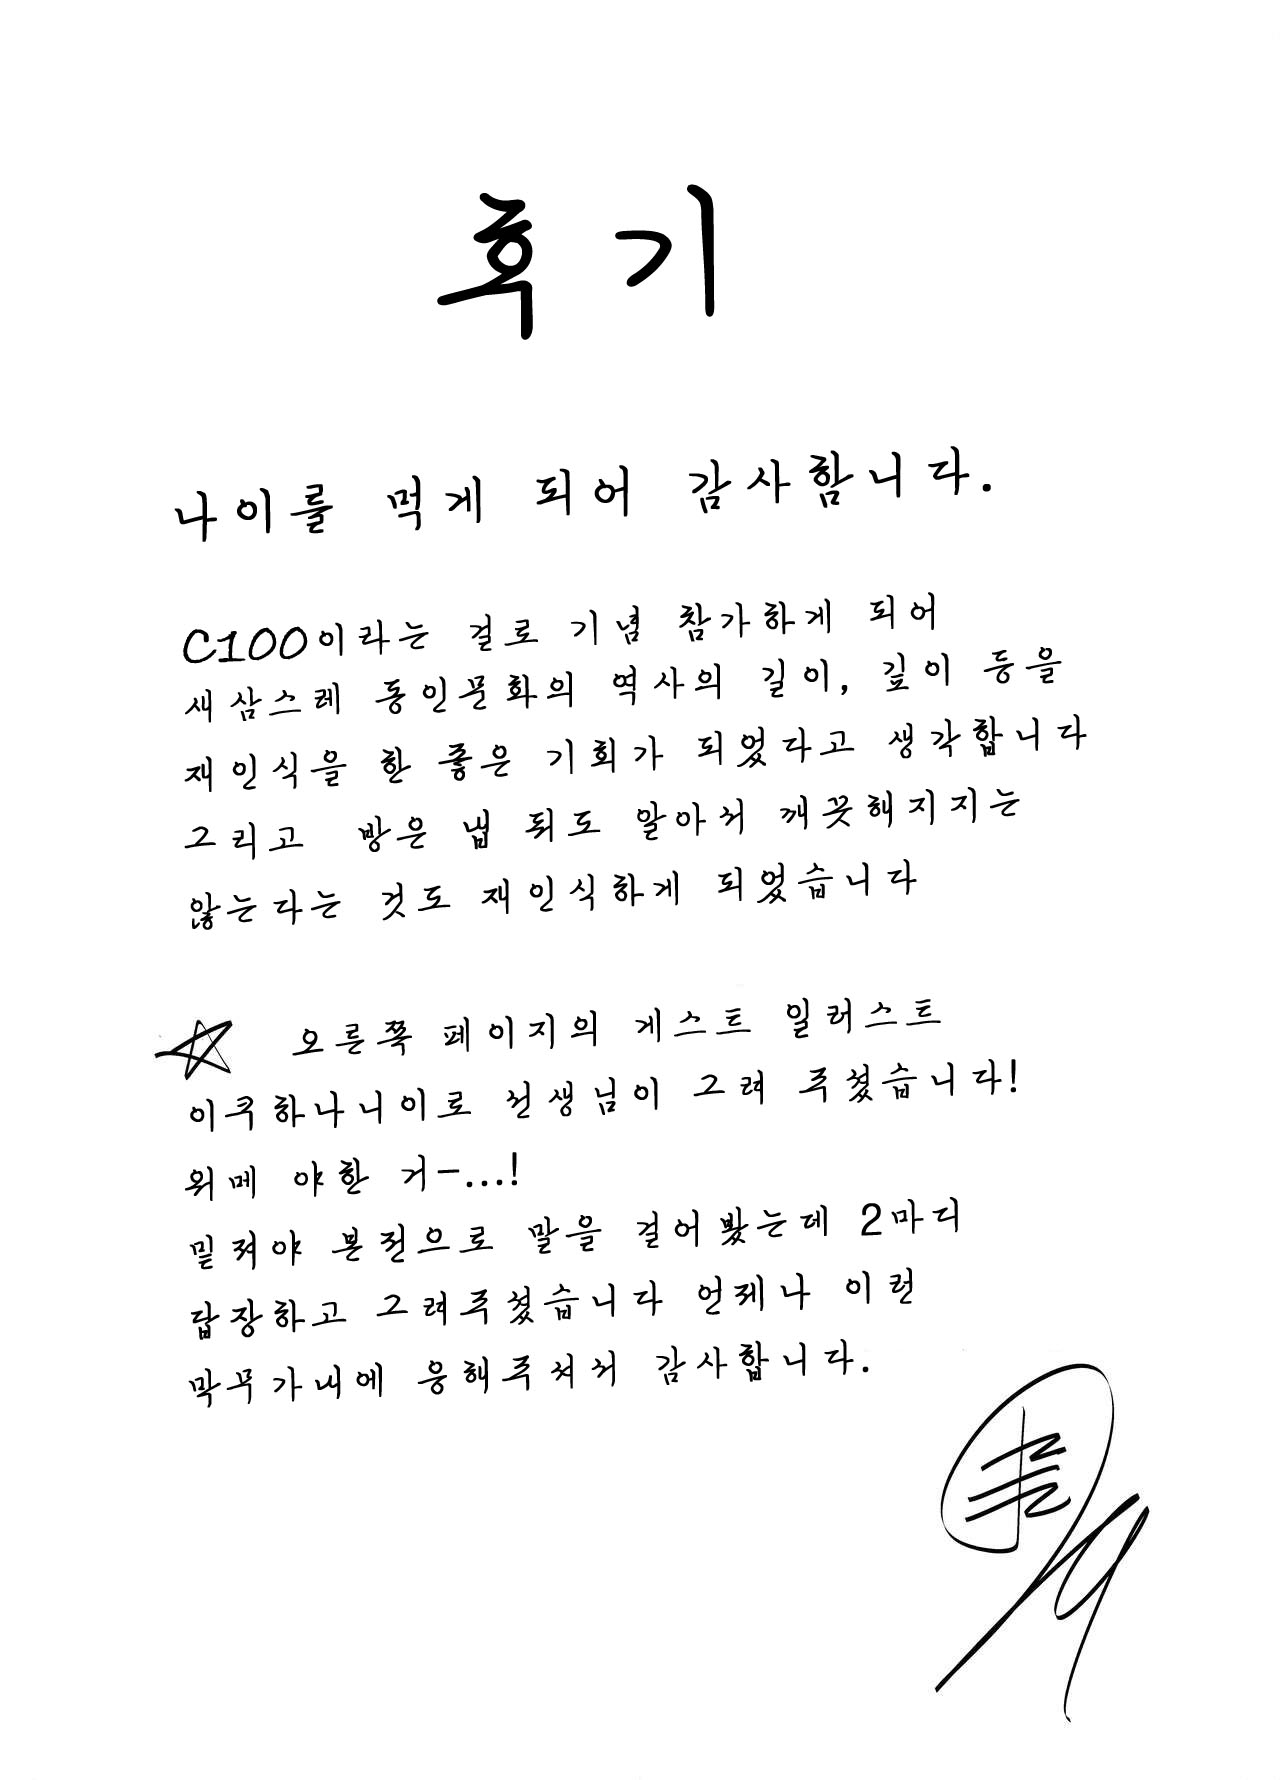 후기
나이를 먹게 되어 감사함니다.
C100이라는 걸로 기념 참가하게 되어
새삼스레 동인문화의 역사의 길이, 깊이 등을
재인식을 한 좋은 기회가 되었다고 생각합니다
그리고 방은 냅 둬도 알아서 깨끗해지지는
않는다는 것도 재인식하게 되었습니다
☆ 오른쪽 페이지의 게스트 일러스트
이쿠하나니이로 선생님이 그려 주셨습니다!
위메 야한 거-...!
밑져야 본전으로 말을 걸어봤는데 2마디
답장하고 그려주셨습니다 언제나 이런
막무가내에 응해주셔서 감사합니다.